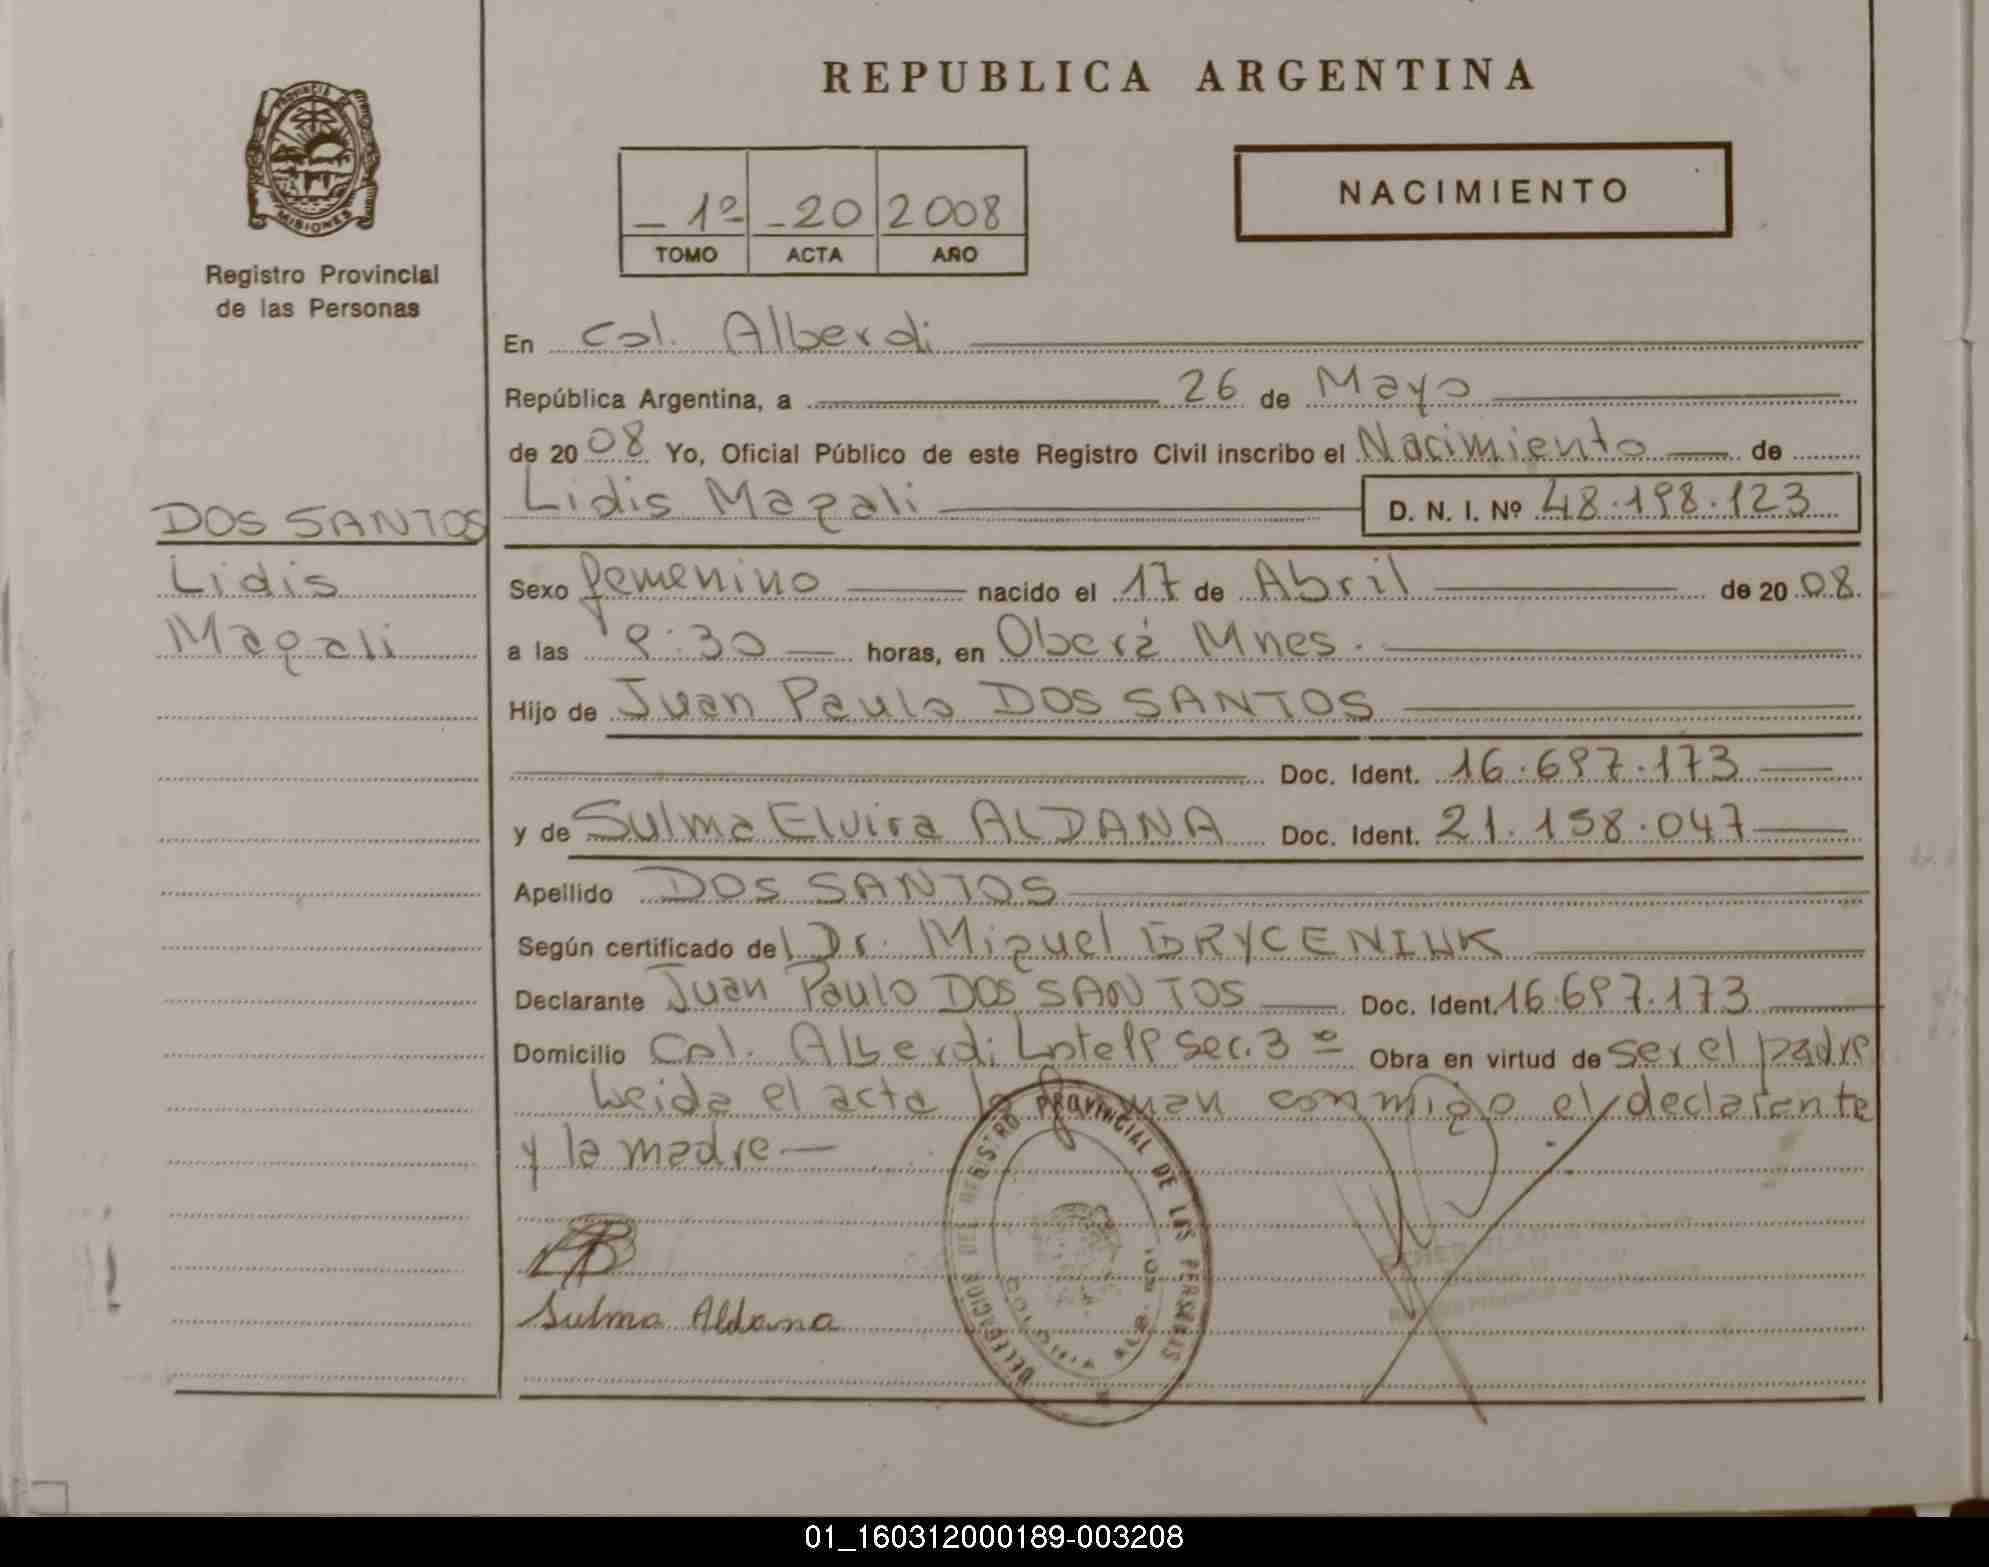 REPUBLICA ARGENTINA
PROVINCIA DE MISIONES
Registro Provincial
de las Personas
1º 20 2008
TOMO ACTA AÑO
NACIMIENTO
En Col. Alberdi
República Argentina, a 26 de Mayo
de 2008 Yo, Oficial Público de este Registro Civil inscribo el Nacimiento de
Lidis Magali D. N. I. Nº 48.198.123
DOS SANTOS
Lidis
Magali
Sexo femenino nacido el 17 de Abril de 2008.
a las 9:30 horas, en Oberá Mnes.
Hijo de Juan Paulo DOS SANTOS
Doc. Ident. 16.697.173
y de Sulma Elvira ALDANA Doc. Ident. 21.158.047
Apellido DOS SANTOS
Según certificado del Dr. Miguel
Declarante Juan Paulo DOS SANTOS Doc. Ident. 16.697.173
Domicilio Col. Alberdi sec. 3º Obra en virtud de ser el padre
Leida el acta la firman conmigo el declarante
y la madre
Sulma Aldana
DELEGACION DEL REGISTRO PROVINCIAL DE LAS PERSONAS
COLONIA
01_160312000189-003208